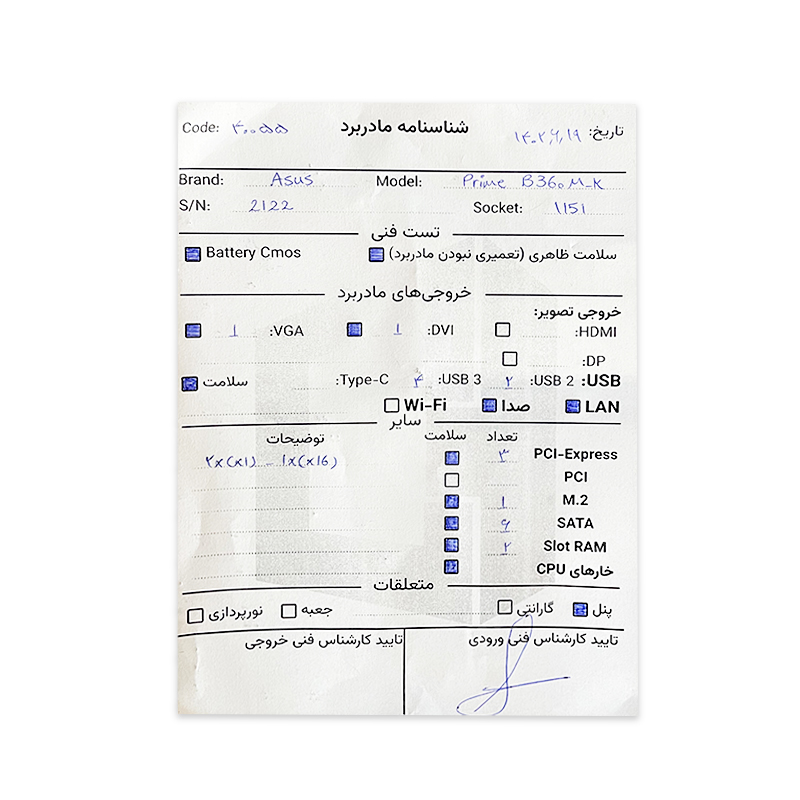 شناسنامه مادربرد
تاریخ: ۱۴۰۲,۶,۱۹
Code: ۴۰۰۵۵
Brand: Asus Model: Prime B360M-K
S/N: 2122 Socket: 1151
تست فنی
سلامت ظاهری (تعمیری نبودن مادربرد) Battery Cmos
خروجی‌های مادربرد
خروجی تصویر:
HDMI: DVI: ۱ VGA: ۱
DP:
USB: USB 2: ۲ USB 3: ۴ Type-C: سلامت
LAN صدا Wi-Fi
سایر
تعداد سلامت توضیحات
PCI-Express ۳ ۲x(x1) - ۱x(x16)
PCI
M.2 ۱
SATA ۶
Slot RAM ۲
خارهای CPU
متعلقات
پنل گارانتی جعبه نورپردازی
تایید کارشناس فنی ورودی تایید کارشناس فنی خروجی